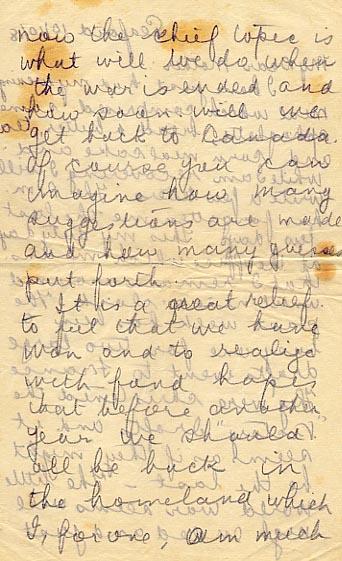 now the chief topic is
what will we do when
the war is ended and
how soon will we
get back to Canada.
Of course you can
imagine how many
suggestions are made
and how many guesses
put forth.
It is a great relief
to feel that we have
won and to realize
with fond hopes
that before another
year we should
all be back in
the homeland which
I, for one, am much